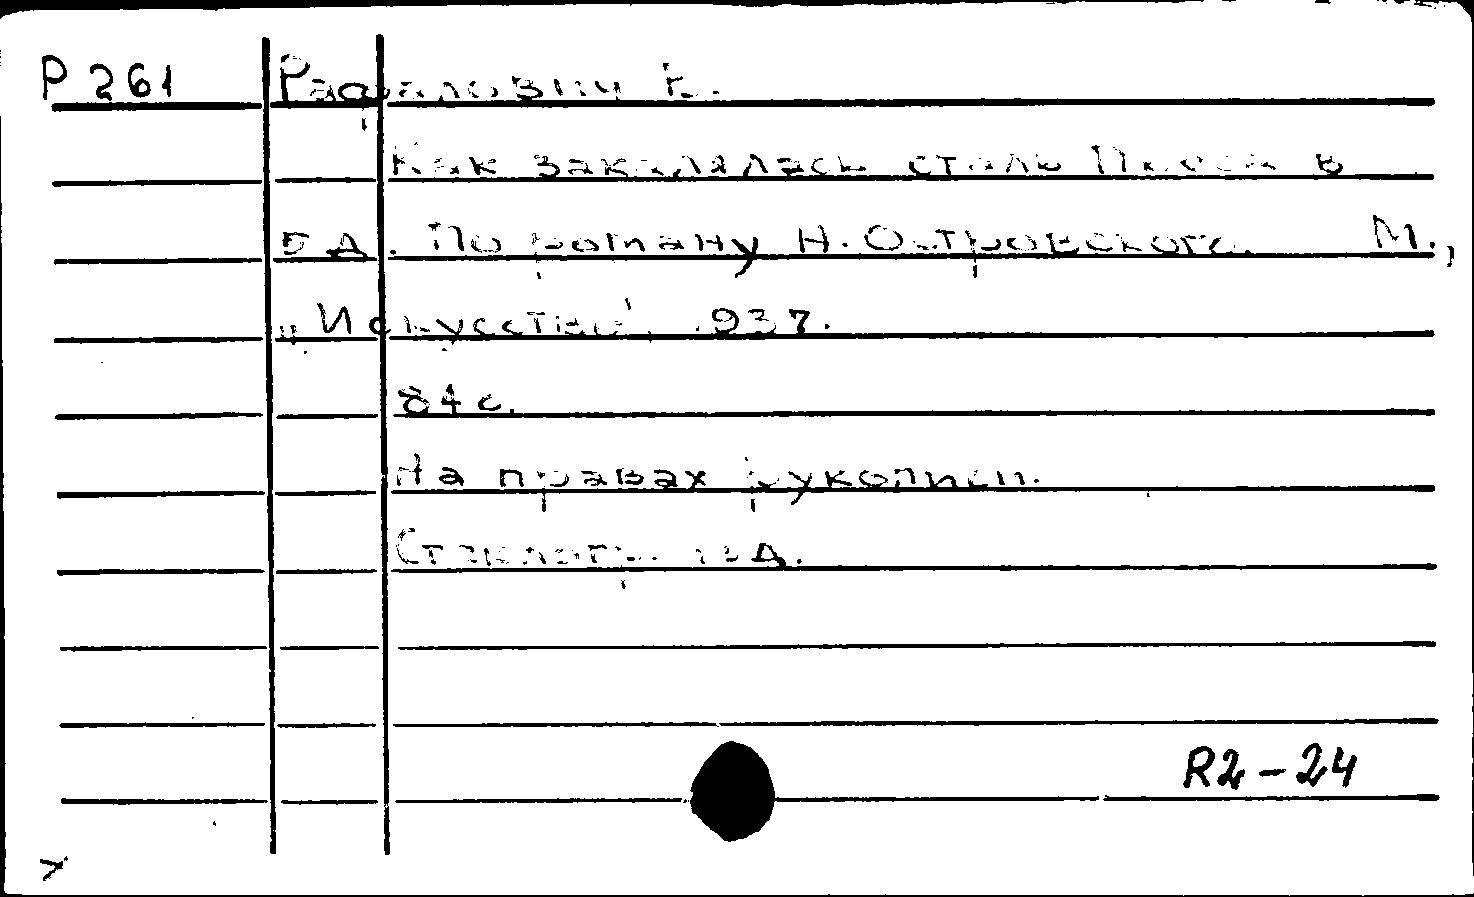 Р 261 Рафалович В.
Как закалялась сталь Пьеса в
5 д. По роману Н. Островского. М.,
„Искусство", 1937.
84 с.
На правах рукописи.
Стеклогр. изд.
R2-24